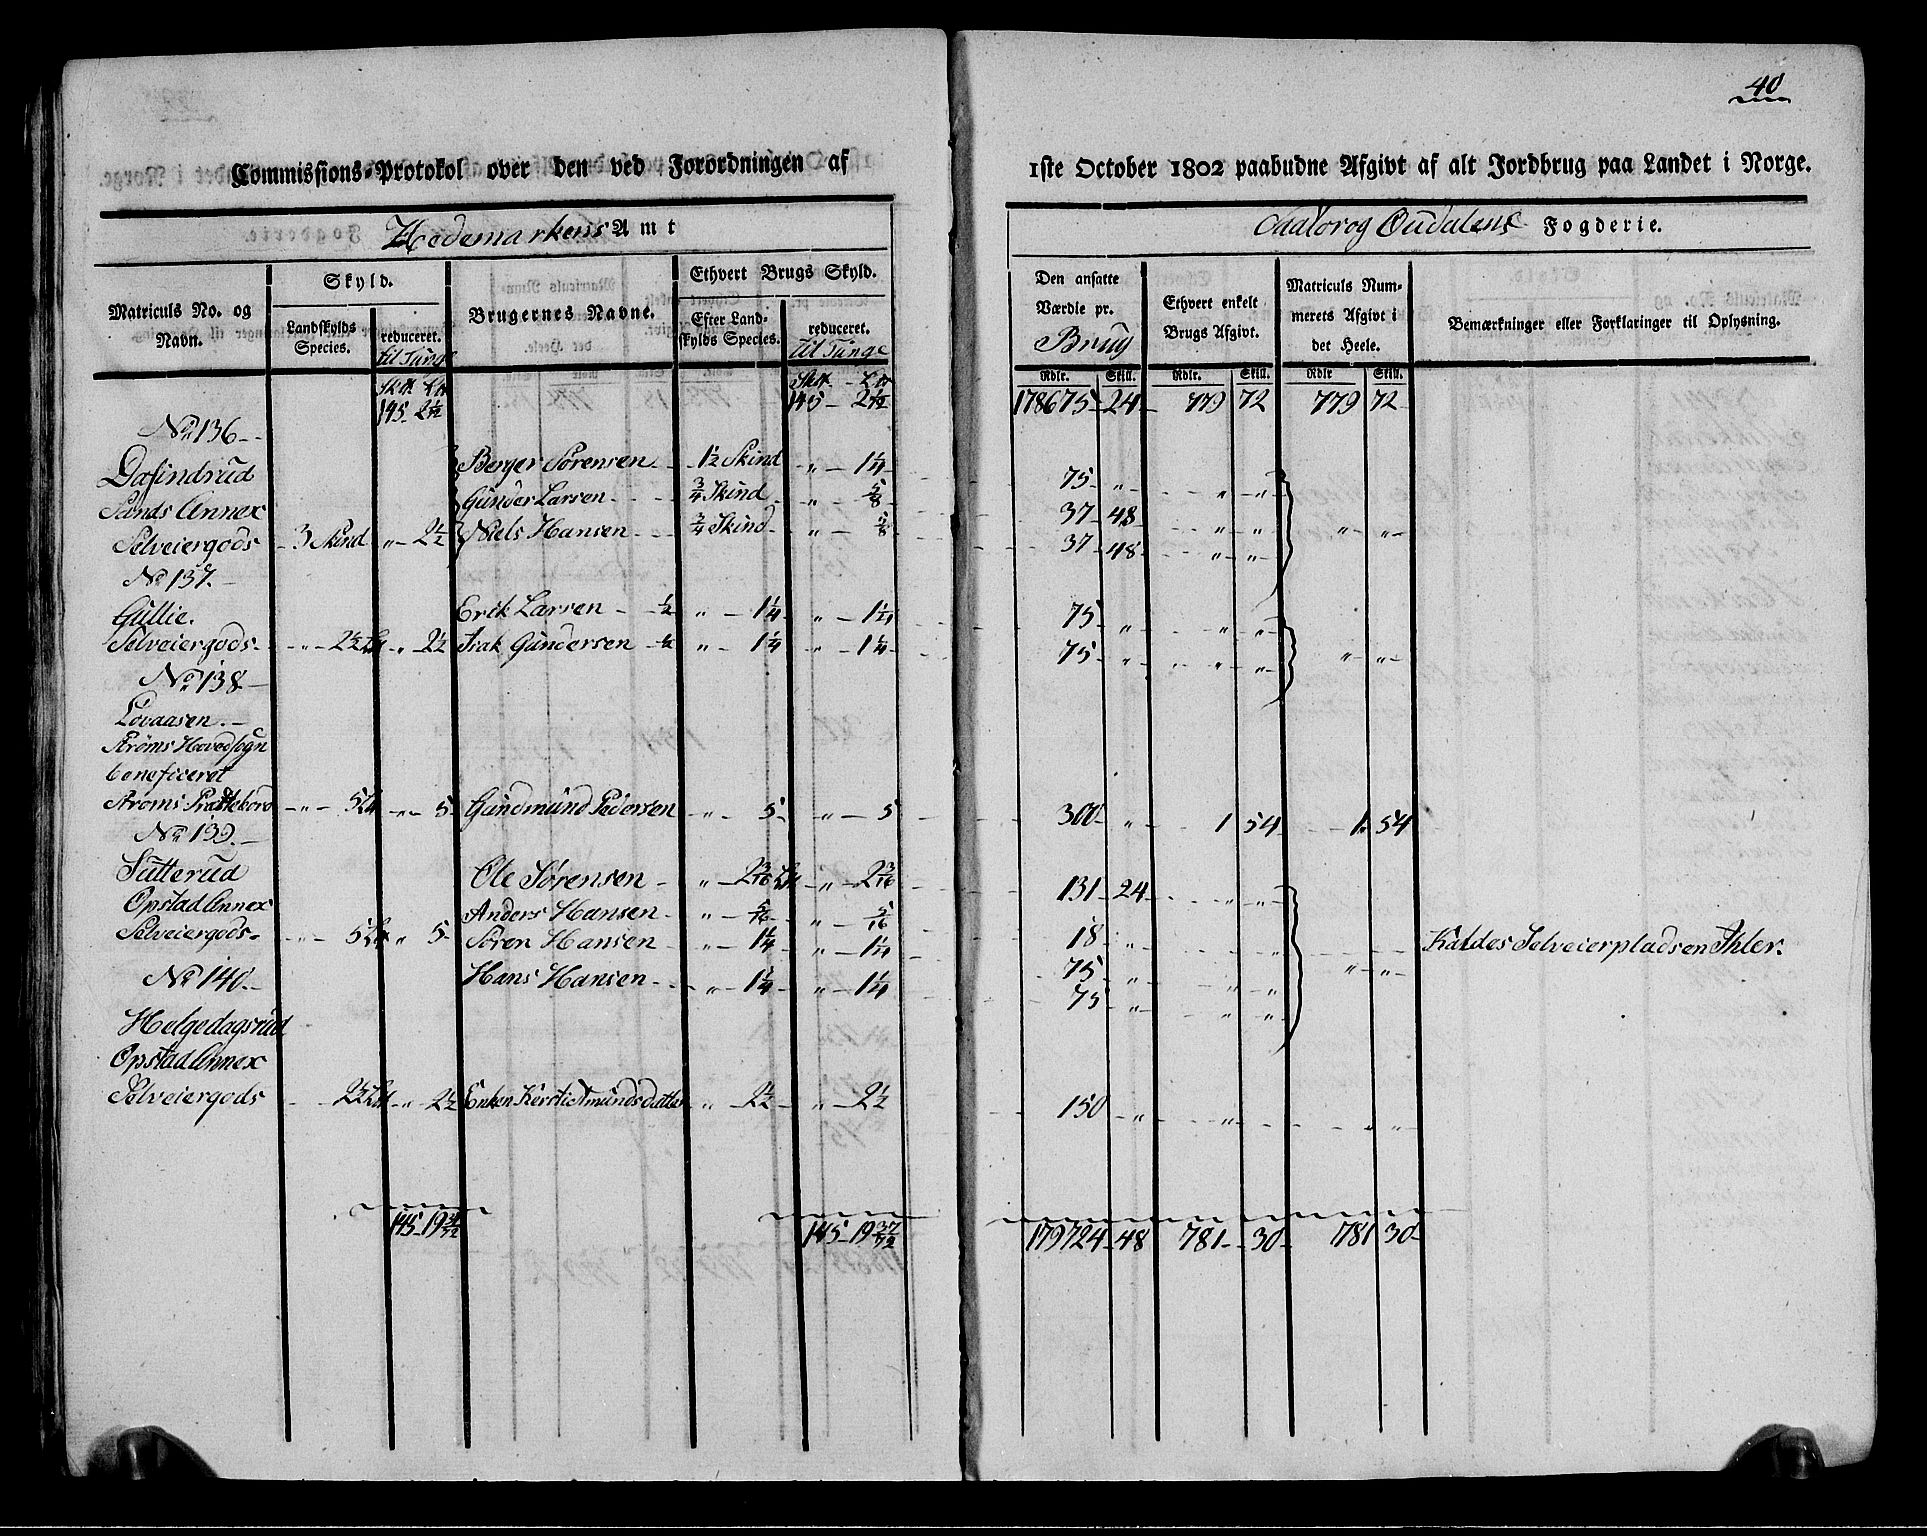 40
Commissions-Protokol over den ved Forordningen af 1ste October 1802 paabudne Afgivt af alt Jordbrug paa Landet i Norge.
Hedemarkens Amt
Oudalens Fogderie.
Matriculs No. og Navn.
Skyld.
Landskylds Species.
reduceret. til Tunge
Brugernes Navne.
Ethvert Brugs Skyld.
Efter Landskylds Species.
reduceret. til Tunge
Den ansatte Værdie pr. Brug
Ethvert enkelt Brugs Afgivt.
Matriculs Nummerets Afgivt i det Heele.
Bemærkninger eller Forklaringer til Oplysning.
Rdlr. Skill. Rdlr. Skill. Rdlr Skill.
145 - 2 1/2 178675 - 24 - 779 72 - 779 72 -
No 136 -
Dafindrud Berger Sørensen - 1½ Skind " - 1¼ 75 - " " "
Sands Annex Gunder Larsen - ¾ Skind " - ⅝ 37 - 48 " "
Selveiergods - 3 Skind " - 2½ Niels Hansen - ¾ Skind - " - ⅝ 37 - 48 " " " "
No 137. -
Gullie. Erik Larsen - ½ " - 1¼ " - 1¼ 75 - " " "
Selveiergods - " - 2½ " 2½ Isak Gundersen ½ " - 1¼ " - 1¼ 75 - " " " " "
No 138 -
Lovaasen. -
Strøms Hovedsogn
beneficeret
Strøms Præstebord - " - 5 " - 5 - Gundmund Pedersen " - 5 - " - 5 300 - " - 1 54 - 1. 54
No 139. -
Sutterud Ole Sørensen - " - 2 3/16 " - 2 3/16 131 - 24 - " "
Opstad Annex Anders Hansen - " - 5/16 " 5/16 18 "
Selveiergods - " - 5 " 5 - Søren Hansen - " - 1¼ " - 1¼ 75 - " Kaldes Selveierpladsen Ihler.
No 140. - Hans Hansen - " - 1¼ " - 1¼ 75 - " " "
Helgedagsrud
Opstad Annex
Selveiergods - 2½ " 2½ Enken Kersti Amundsdatter " - 2½ - " - 2½ 150 - " "
145 - 19 145 - 19 179724 - 48 781 - 30 - 781 30 -